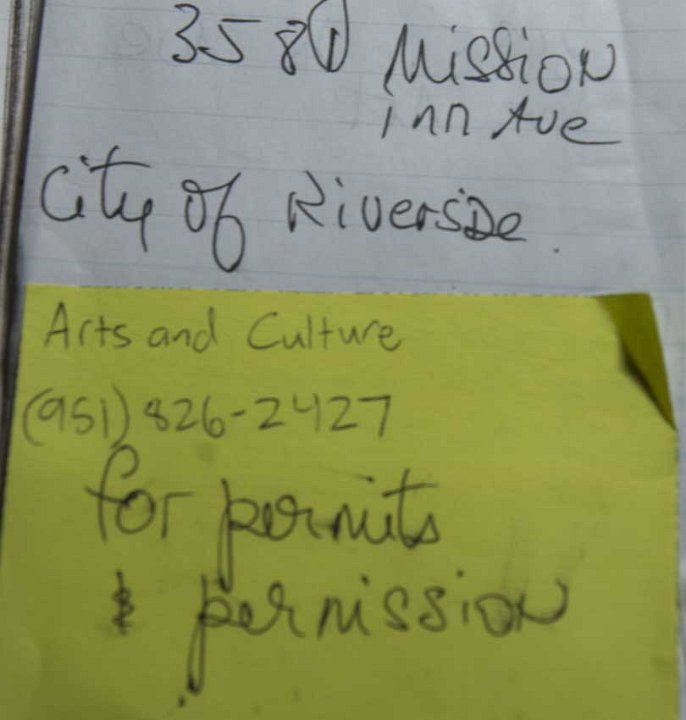 3581 Mission
inn Ave
City of Riverside.
Arts and Culture
(951) 826-2427
for permits
& permission